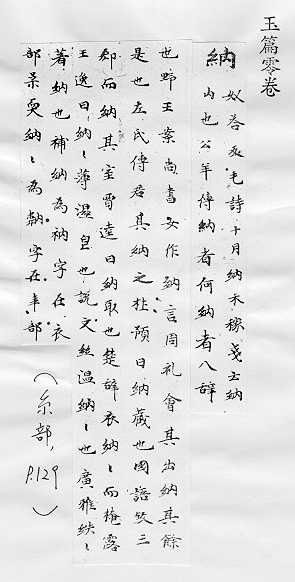 玉篇零卷
納 奴荅反毛詩十月納禾稼戔云納
内也公羊傳納者何納者入辞
也野王案尚書女作納言周礼會其出納其餘
是也左氏傳君其納之杜預曰納蔵也國語殺三
郄而納其室賈逵曰納取也楚辞衣納〻而掩露
王逸曰納〻薄濕皃也說文絲温納〻也廣雅紩〻
著納也補納為衲字在衣
部柔耎納〻為䪏字在韋部
（糸部，P.129）